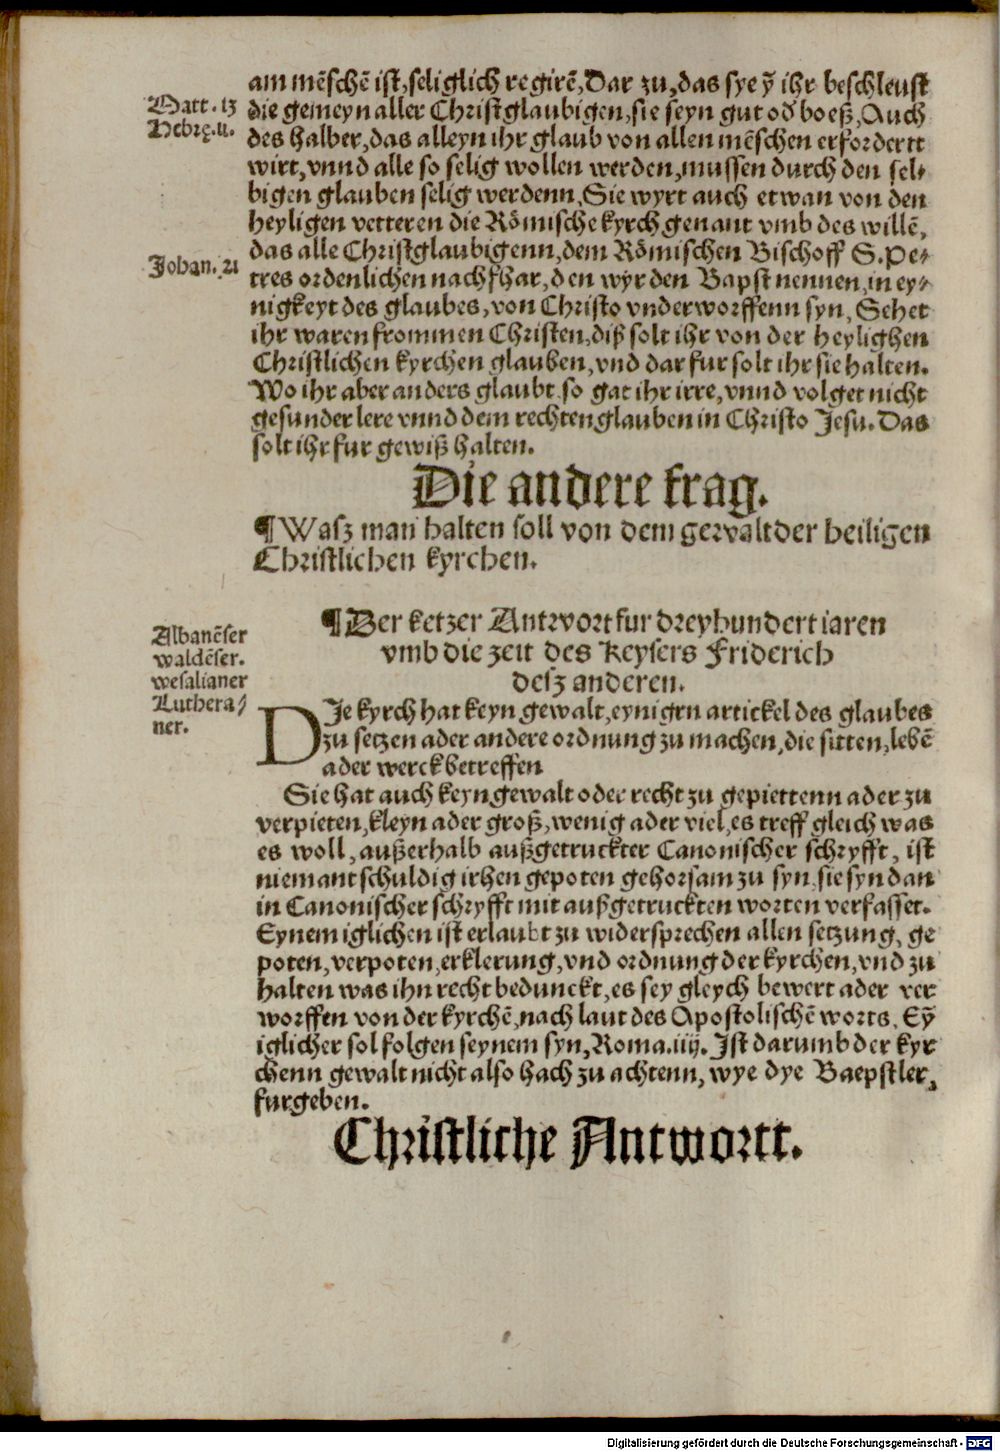 am mēschē ist, seliglich regirē, Dar zu, das sye ȳ ihr beschleust
Matt. 13
die gemeyn aller Christglaubigen, sie seyn gut od boeß, Auch
Hebrę. 11.
des halber, das alleyn ihr glaub von allen mēschen erfordertt
wirt, vnnd alle so selig wollen werden, mussen durch den sel⸗
bigen glauben selig werdenn, Sie wyrt auch etwan von den
heyligen vetteren die Römische kyrch genant vmb des willē,
das alle Christglaubigenn, dem Römischen Bischoff S. Pe⸗
Johan. 21
tres ordenlichen nachfhar, den wyr den Bapst nennen, in ey⸗
nigkeyt des glaubes, von Christo vnderworffenn syn, Sehet
ihr waren frommen Christen, diß solt ihr von der heylighen
Christlichen kyrchen glauben, vnd dar fur solt ihr sie halten.
Wo ihr aber anders glaubt so gat ihr irre, vnnd volget nicht
gesunder lere vnnd dem rechten glauben in Christo Jesu. Das
solt ihr fur gewiß halten.
Die andere frag.
¶ Wasz man halten soll von dem gewalt der heiligen
Christlichen kyrchen.
¶ Der ketzer Antwort fur dreyhundert iaren
vmb die zeit des Keysers Friderich
desz anderen.
Albanēser
waldēser.
wesalianer
Luthera⸗
ner.
DJe kyrch hat keyn gewalt, eynigen artickel des glaubes
zu setzen ader andere ordnung zu machen, die sitten, lebē
ader werck betreffen
Sie hat auch keyn gewalt oder recht zu gepiettenn ader zu
verpieten, kleyn ader groß, wenig ader viel, es treff gleich was
es woll, außerhalb außgetruckter Canonischer schryfft, ist
niemant schuldig irhen gepoten gehorsam zu syn, sie syn dan
in Canonischer schryfft mit außgetruckten worten verfasset.
Eynem iglichen ist erlaubt zu widersprechen allen setzung, ge
poten, verpoten, erklerung, vnd ordnung der kyrchen, vnd zu
halten was ihn recht bedunckt, es sey gleych bewert ader ver
worffen von der kyrchē, nach laut des Apostolischē worts. Eȳ
iglicher sol folgen seynem syn, Roma. iiij. Jst darumb der kyr
chenn gewalt nicht also hach zu achtenn, wye dye Baepstler,
furgeben.
Christliche Antwortt.
Digitalisierung gefördert durch die Deutsche Forschungsgemeinschaft - DFG